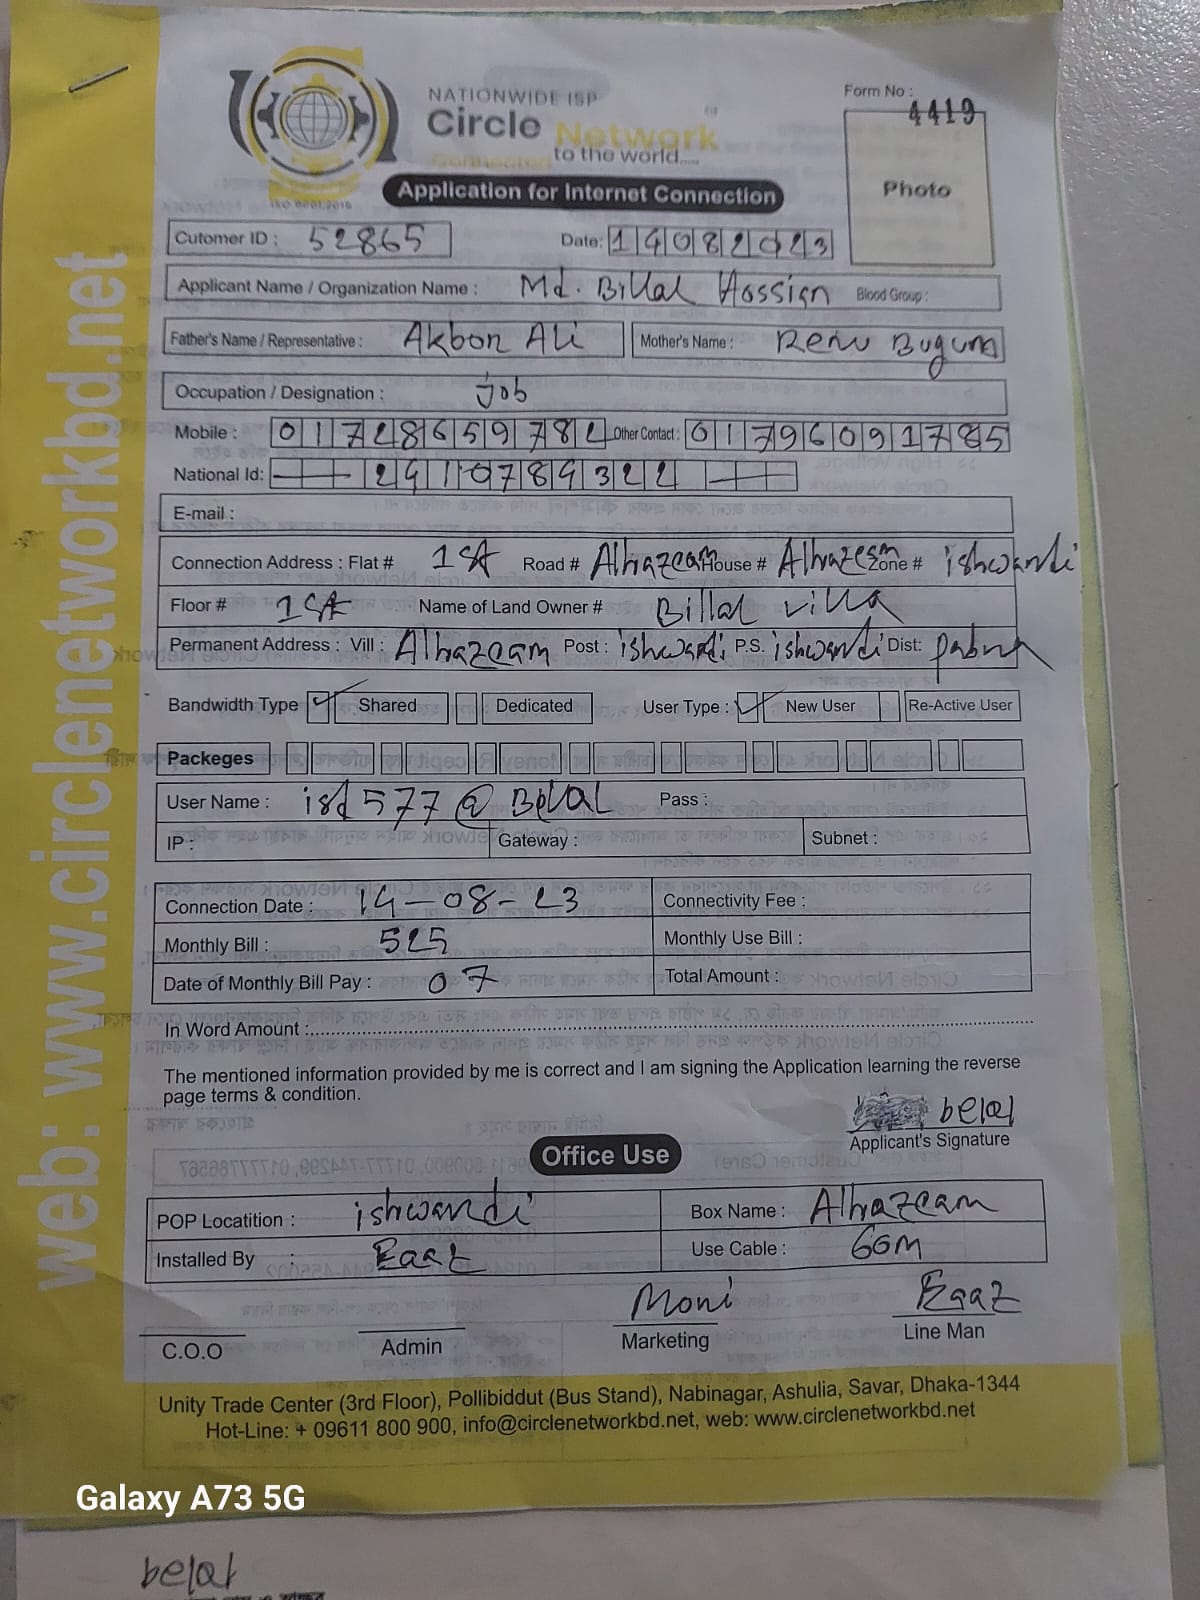 NATIONWIDE ISP
Circle Network
Connected to the world.....
ISO 9001:2015
Application for Internet Connection
Form No : 4419
Photo
Cutomer ID : 52865 Date: 14082023
Applicant Name / Organization Name : Md. Billal Hossign Blood Group :
Father's Name / Representative : Akbon Ali Mother's Name : Renu Bugum
Occupation / Designation : job
Mobile : 01728659782 Other Contact : 01796091785
National Id: 2410789322
E-mail :
Connection Address : Flat # 1st Road # Alhazeam House # Alhazeam Zone # ishwardi
Floor # 1st Name of Land Owner # Billal villa
Permanent Address : Vill : Alhazeam Post : ishwardi P.S. ishwardi Dist: pabna
Bandwidth Type ✓ Shared Dedicated User Type : ✓ New User Re-Active User
Packeges
User Name : isd577@Belal Pass :
IP : Gateway : Subnet :
Connection Date : 14-08-23 Connectivity Fee :
Monthly Bill : 525 Monthly Use Bill :
Date of Monthly Bill Pay : 07 Total Amount :
In Word Amount :
The mentioned information provided by me is correct and I am signing the Application learning the reverse
page terms & condition.
belal
Applicant's Signature
Office Use
POP Locatition : ishwardi Box Name : Alhazeam
Installed By : Eaaz Use Cable : 66M
Moni Eaaz
C.O.O Admin Marketing Line Man
Unity Trade Center (3rd Floor), Pollibiddut (Bus Stand), Nabinagar, Ashulia, Savar, Dhaka-1344
Hot-Line: + 09611 800 900, info@circlenetworkbd.net, web: www.circlenetworkbd.net
web: www.circlenetworkbd.net
Galaxy A73 5G
belal